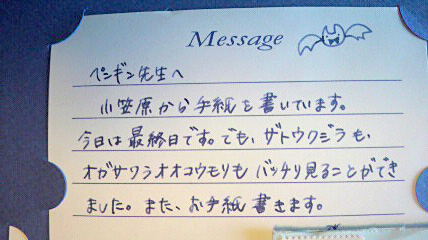 Message
ペンギン先生へ
小笠原から手紙を書いています。
今日は最終日です。でも、ザトウクジラも、
オガサワラオオコウモリもバッチリ見ることができ
ました。また、お手紙書きます。